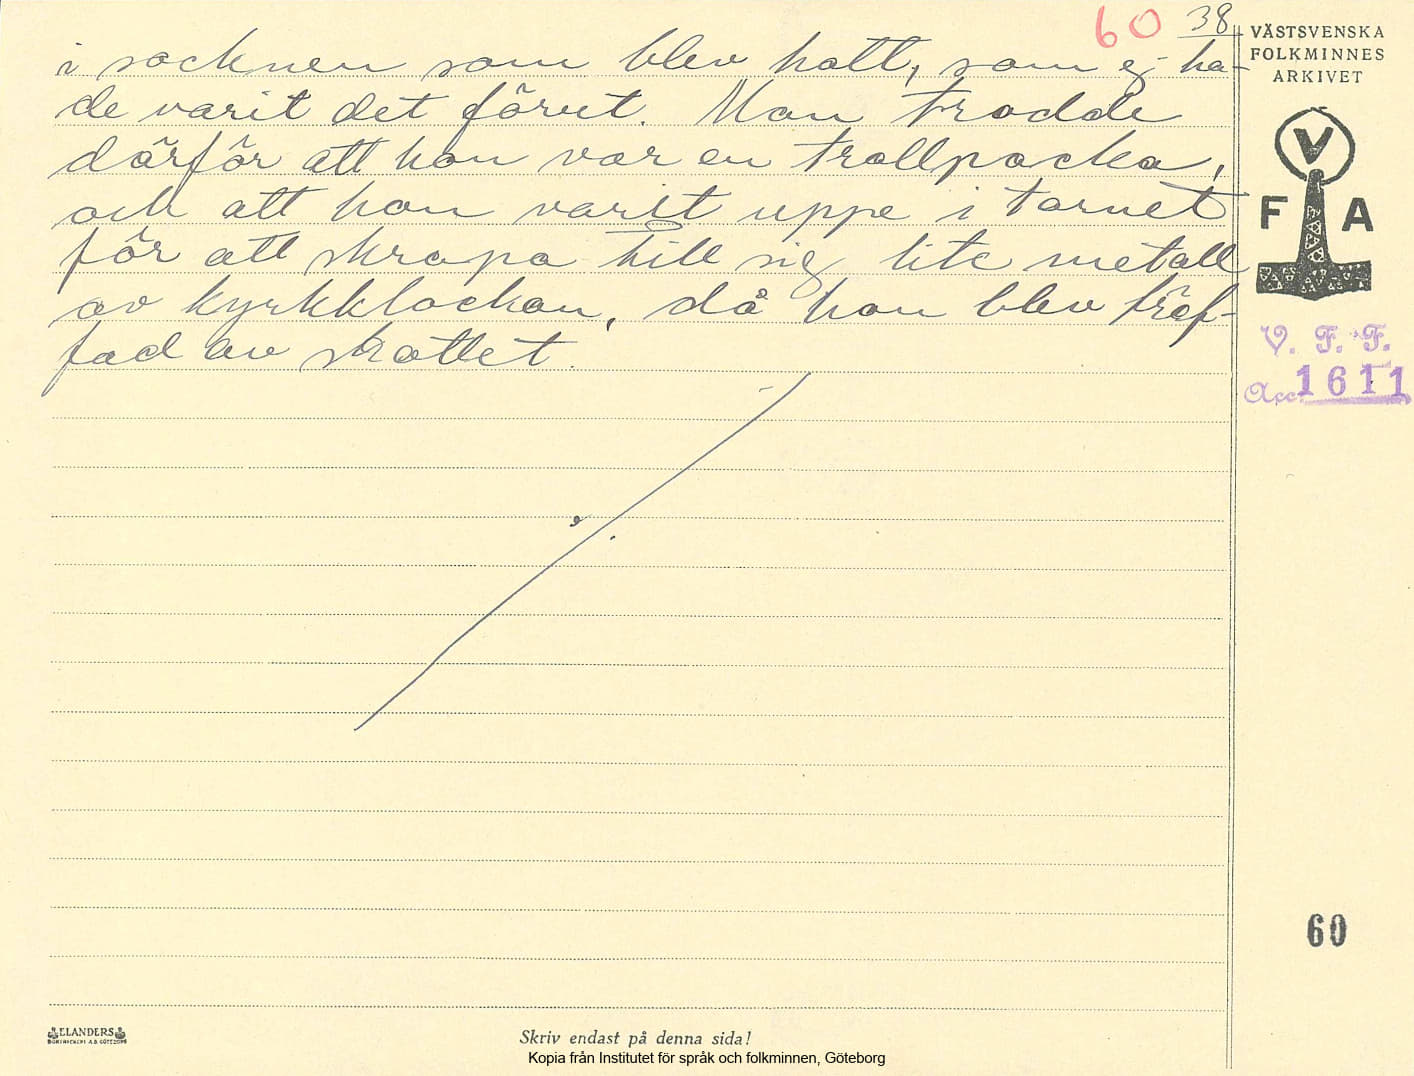 60 38
i socknen som blev halt, som ej ha-
de varit det förut. Man trodde
därför att hon var en trollpacka,
och att hon varit uppe i tornet
för att skrapa till sig lite metall
av kyrkklockan, då hon blev träf-
fad av skottet.
VÄSTSVENSKA
FOLKMINNES
ARKIVET
V
F A
V. F. F.
Acc. 1611
60
ELANDERS
BOKTRYCKERI A.B. GÖTEBORG
Skriv endast på denna sida!
Kopia från Institutet för språk och folkminnen, Göteborg